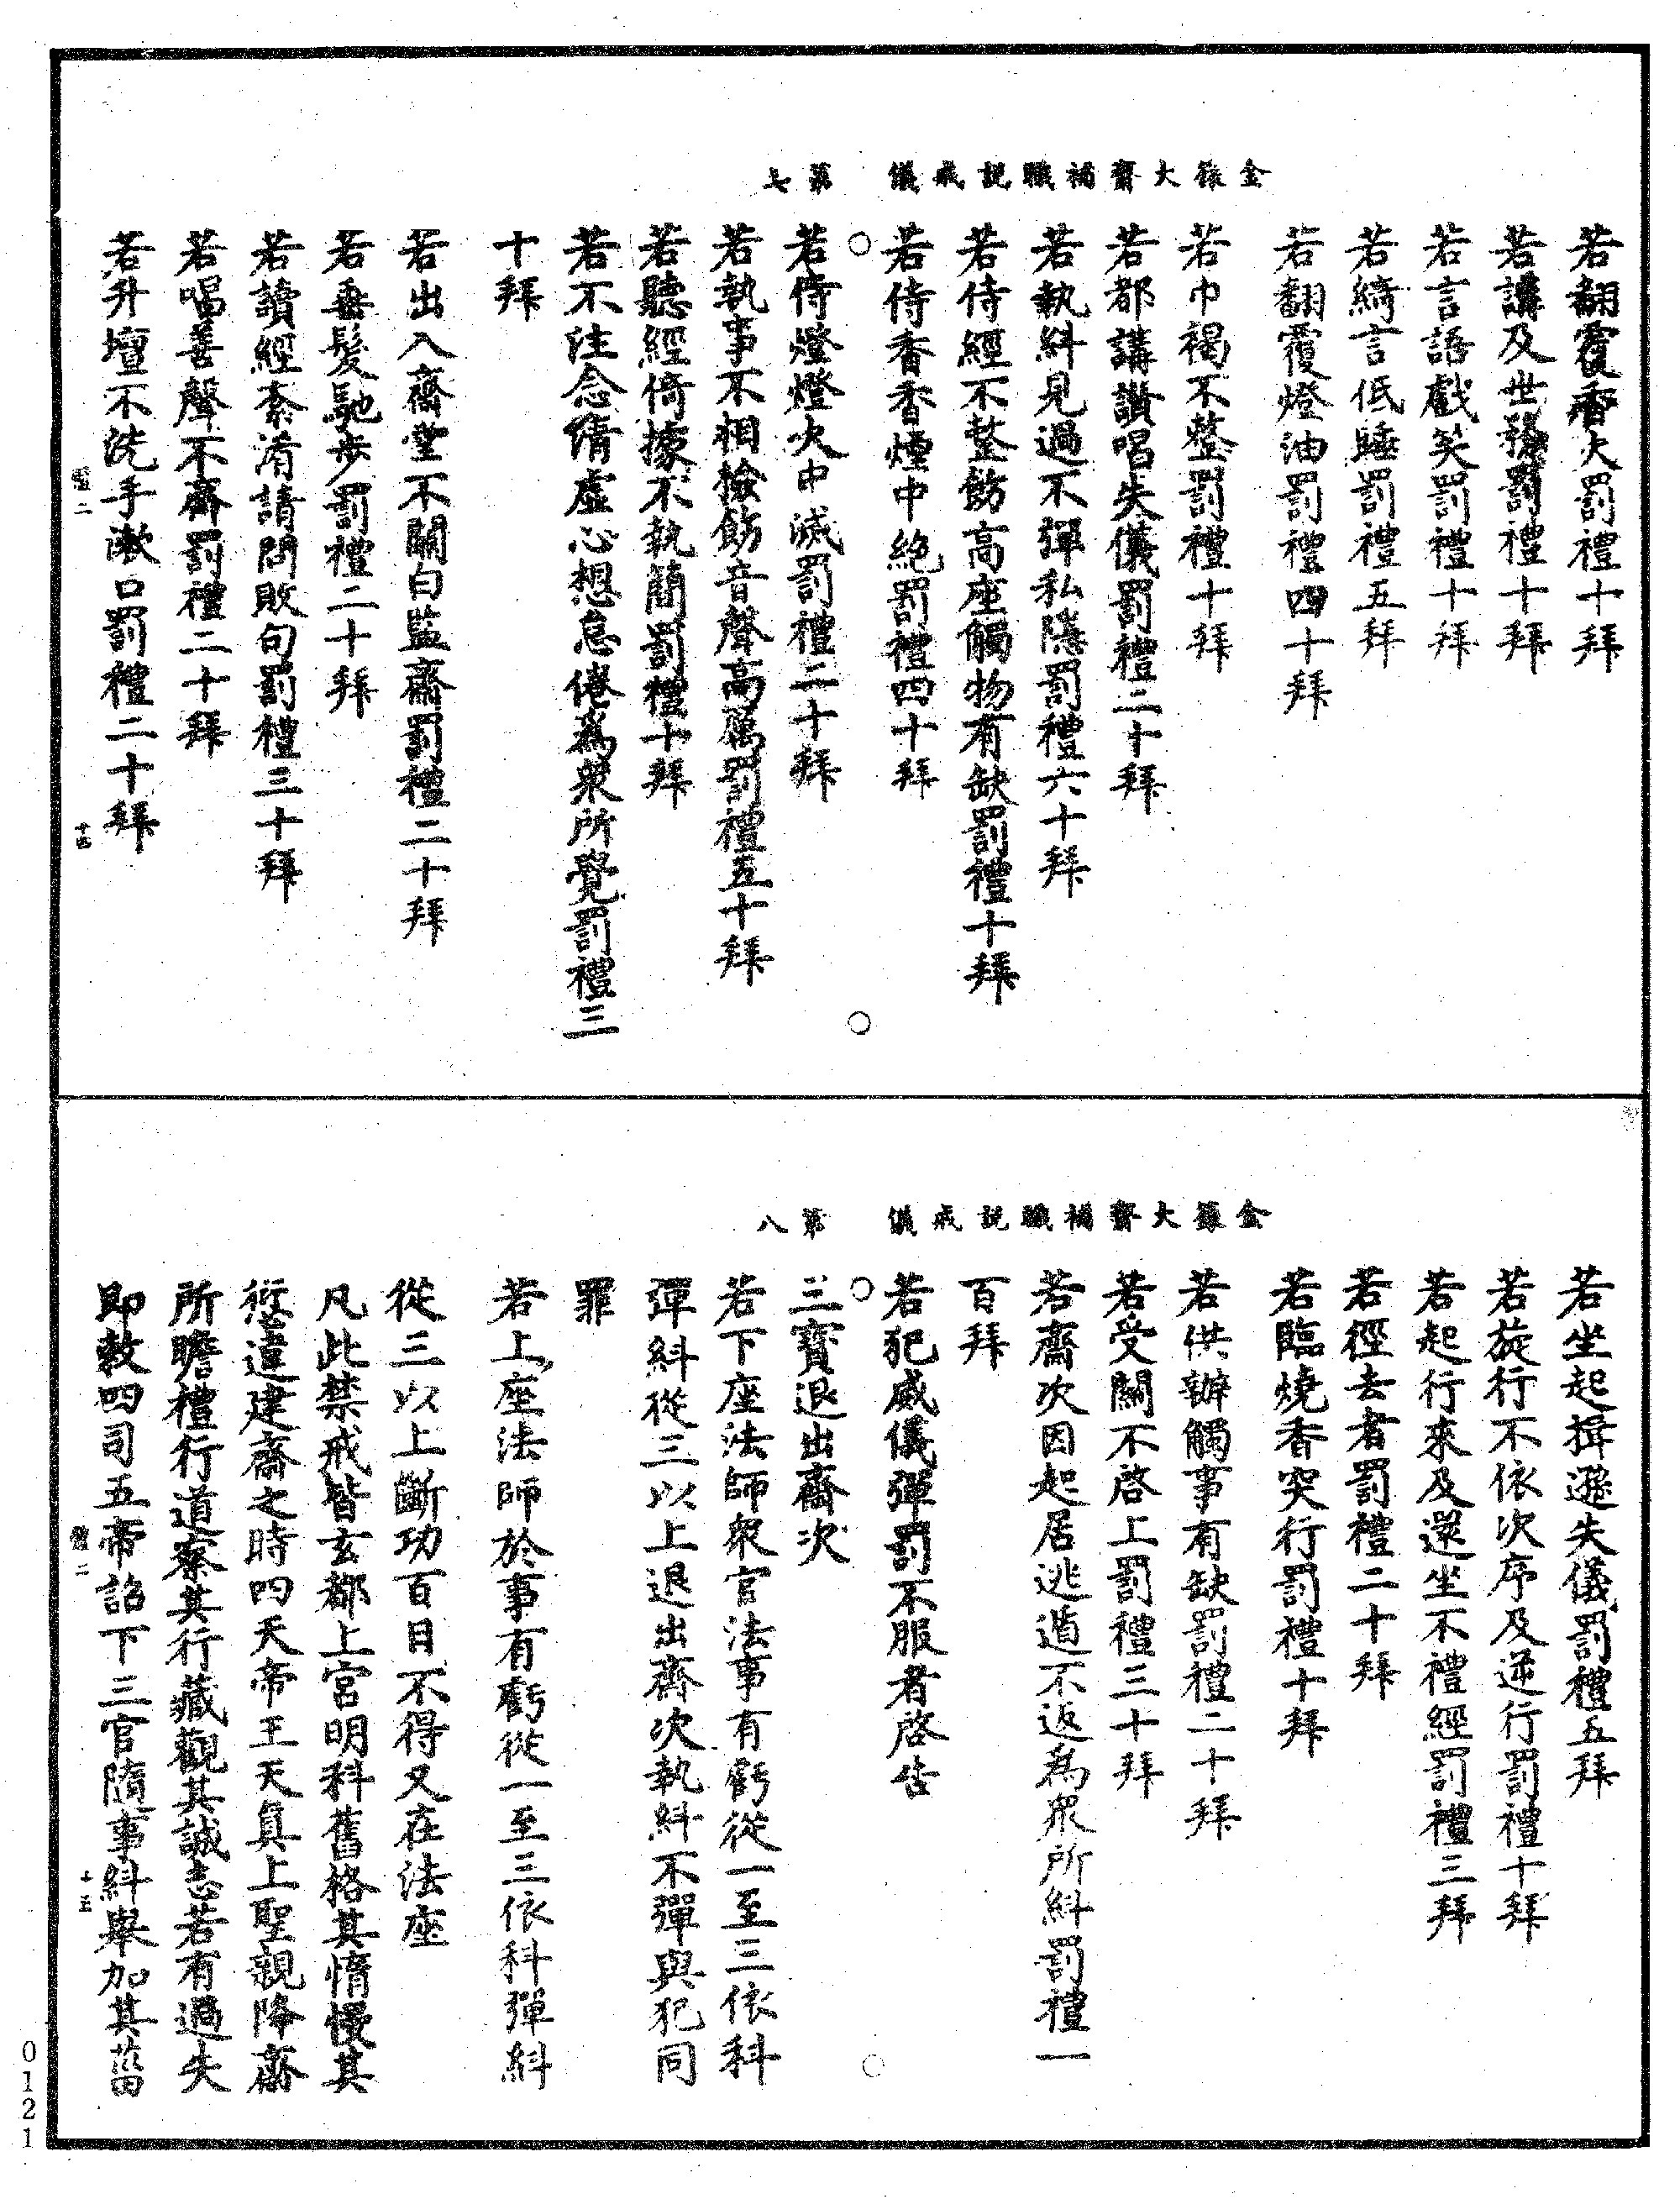 金籙大齋補職說戒儀 第七
若翻覆香火罰禮十拜
若講及世務罰禮十拜
若言語戲笑罰禮十拜
若綺言低睡罰禮五拜
若翻覆燈油罰禮四十拜
若巾褐不整罰禮十拜
若都講讚唱失儀罰禮二十拜
若執糾見過不彈私隱罰禮六十拜
若侍經不整飭高座觸物有缺罰禮十拜
若侍香香煙中絕罰禮四十拜
若侍燈燈火中滅罰禮二十拜
若執事不相撿飭音聲高厲罰禮五十拜
若聽經倚據不執簡罰禮十拜
若不注念清虛心想怠倦為衆所覺罰禮三
十拜
若出入齋堂不關白監齋罰禮二十拜
若垂髮馳步罰禮二十拜
若讀經紊淆請問敗句罰禮三十拜
若唱善聲不齊罰禮二十拜
若升壇不洗手漱口罰禮二十拜
二 十四
金籙大齋補職說戒儀 第八
若坐起揖遜失儀罰禮五拜
若旋行不依次序及逆行罰禮十拜
若起行來及還坐不禮經罰禮三拜
若徑去者罰禮二十拜
若臨燒香突行罰禮十拜
若供辦觸事有缺罰禮二十拜
若受關不啓上罰禮三十拜
若齋次因起居逃遁不返為衆所糾罰禮一
百拜
若犯威儀彈罰不服者啓告
三寶退出齋次
若下座法師衆官法事有虧從一至三依科
彈糾從三以上退出齋次執糾不彈與犯同
罪
若上座法師於事有虧從一至三依科彈糾
從三以上斷功百日不得又在法座
凡此禁戒皆玄都上宮明科舊格其惰慢其
愆違建齋之時四天帝王天真上聖親降齋
所瞻禮行道察其行藏觀其誠志若有過失
即敕四司五帝詔下三官隨事糾舉加其菑
二 十五
0121